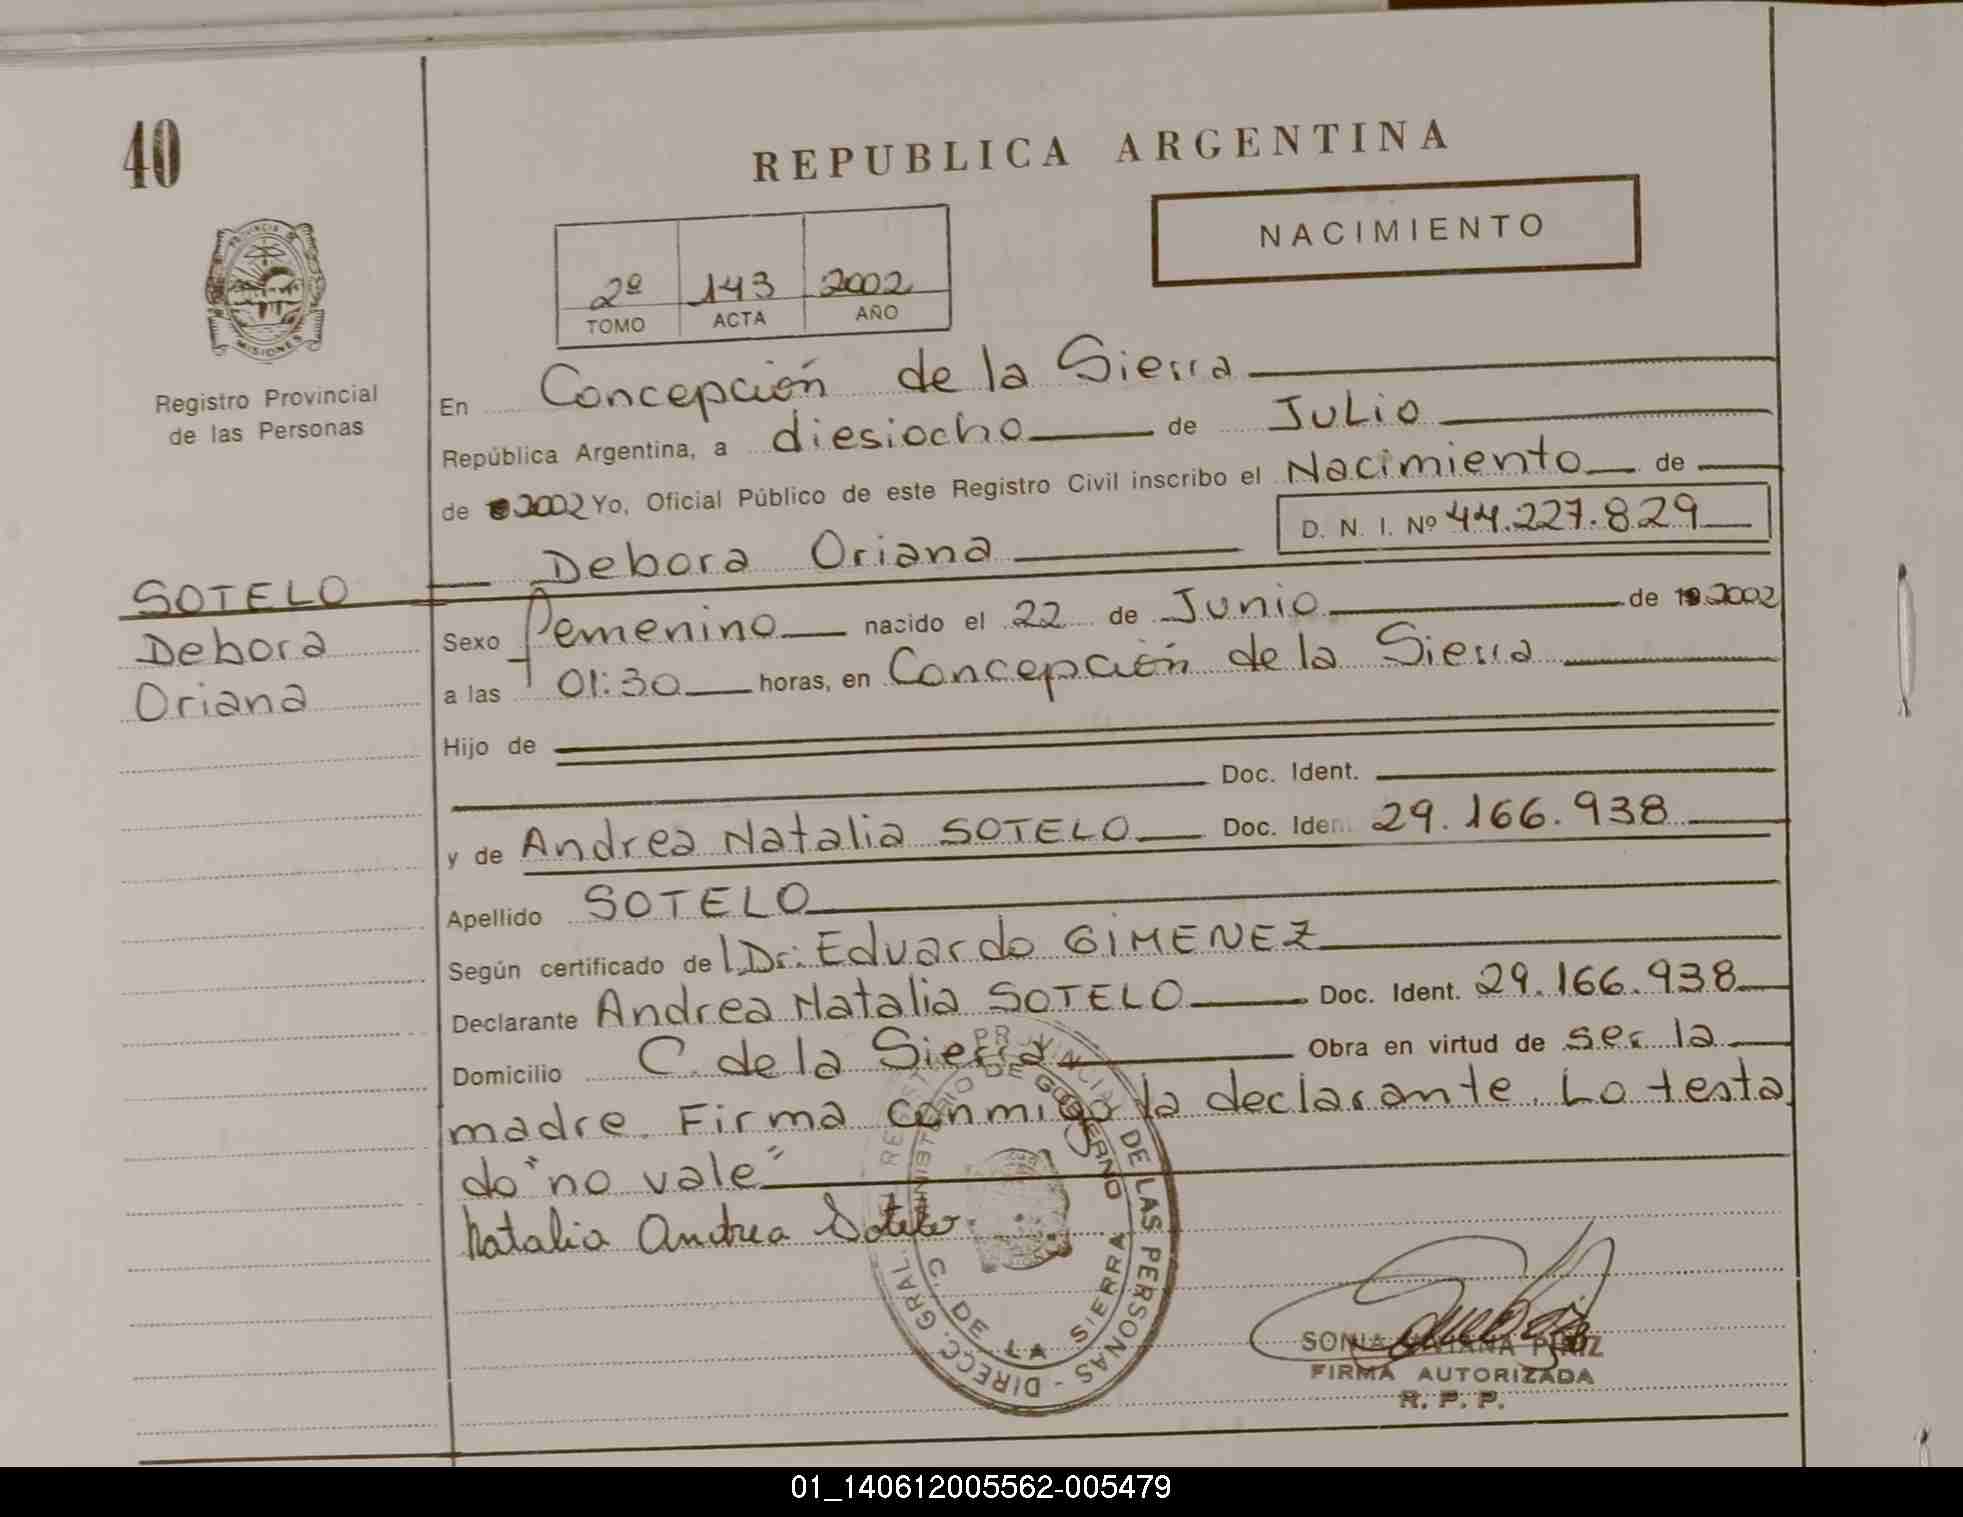 40
REPUBLICA ARGENTINA
NACIMIENTO
2º 143 2002
TOMO ACTA AÑO
PROVINCIA DE
MISIONES
Registro Provincial
de las Personas
En Concepción de la Sierra
República Argentina, a diesiocho de Julio
de 2002 Yo, Oficial Público de este Registro Civil inscribo el Nacimiento de
D. N. I. Nº 44.227.829
Debora Oriana
SOTELO
Debora
Oriana
Sexo femenino nacido el 22 de Junio de 19 2002
a las 01:30 horas, en Concepción de la Sierra
Hijo de
Doc. Ident.
y de Andrea Natalia SOTELO Doc. Iden. 29.166.938
Apellido SOTELO
Según certificado de l Dr: Eduardo GIMENEZ
Declarante Andrea Natalia SOTELO Doc. Ident. 29.166.938
Domicilio C. de la Sierra Obra en virtud de ser la
madre. Firma conmigo la declarante. Lo testa
do "no vale"
Natalia Andrea Sotelo
DIRECC. GRAL. DE LAS PERSONAS -
MINISTERIO DE GOBIERNO
C. DE LA SIERRA
SONIA VIVIANA
FIRMA AUTORIZADA
R. P. P.
01_140612005562-005479